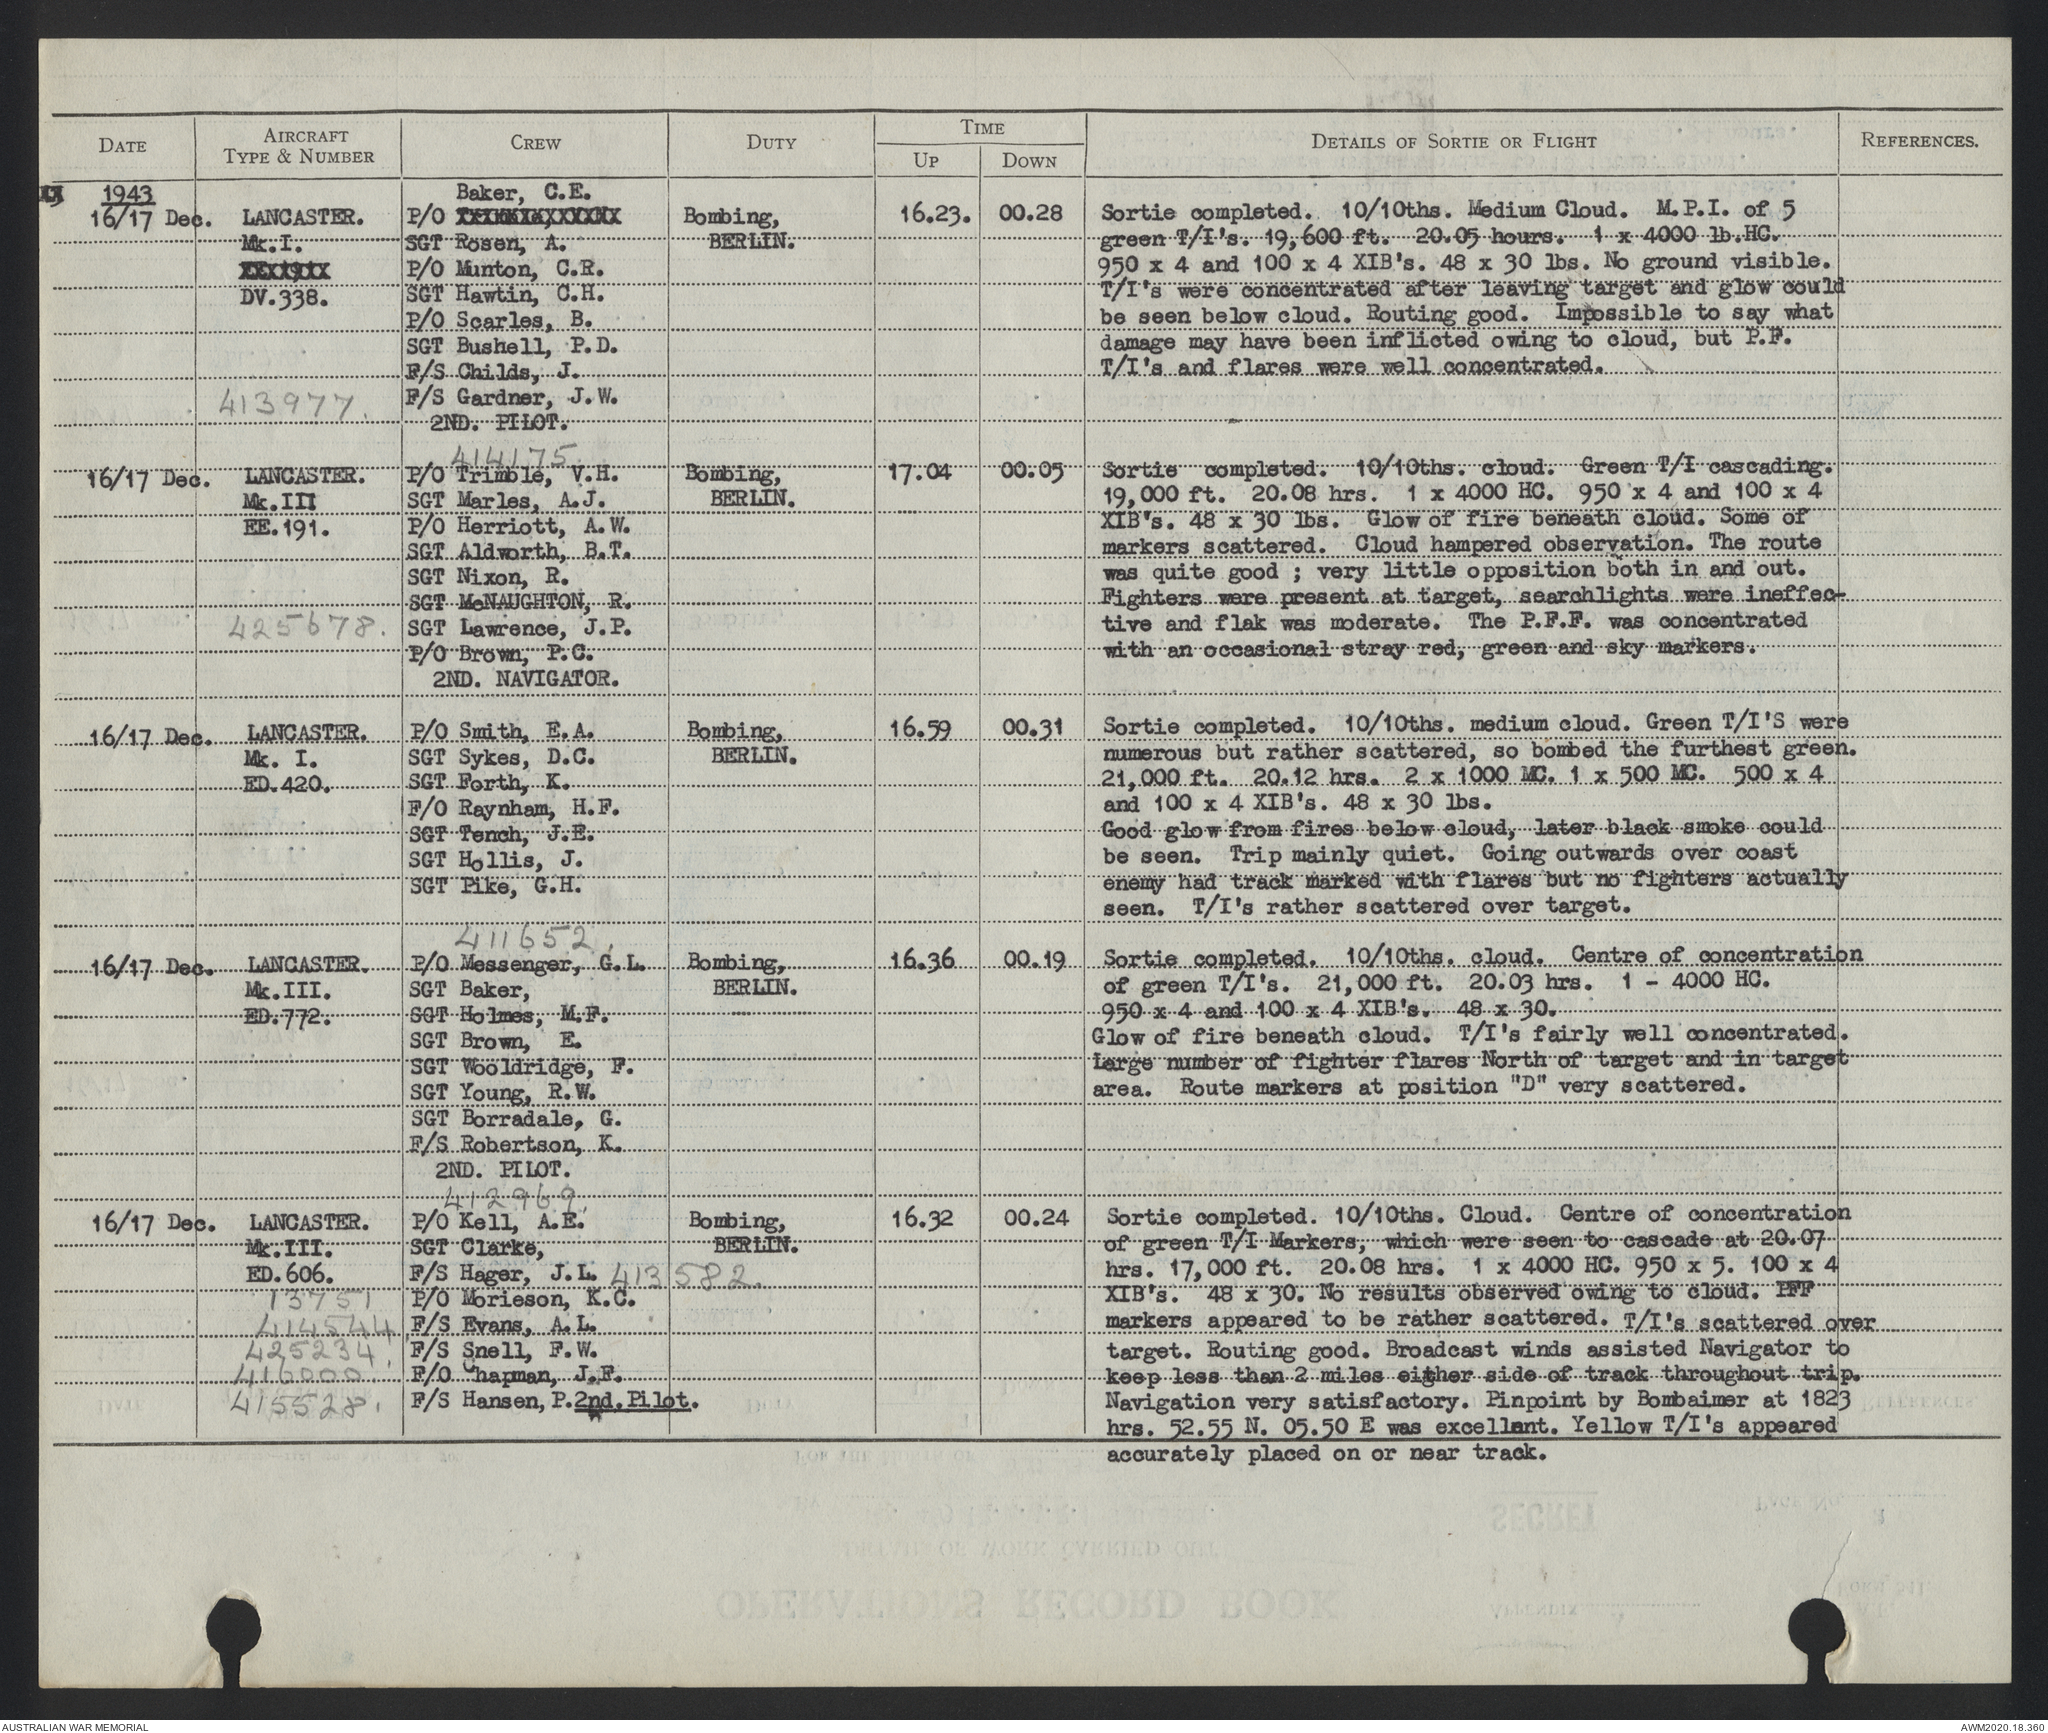 DATE AIRCRAFT TYPE & NUMBER CREW DUTY TIME UP DOWN DETAILS OF SORTIE OR FLIGHT REFERENCES.
1943
16/17 Dec. LANCASTER. Mk.I. DV.338.
413977.
Baker, C.E.
P/O
SGT Rosen, A.
P/O Munton, C.R.
SGT Hawtin, C.H.
P/O Scarles, B.
SGT Bushell, P.D.
F/S Childs, J.
F/S Gardner, J.W.
2ND. PILOT.
Bombing,
BERLIN.
16.23. 00.28
Sortie completed. 10/10ths. Medium Cloud. M.P.I. of 5
green T/I's. 19,600 ft. 20.05 hours. 1 x 4000 lb.HC.
950 x 4 and 100 x 4 XIB's. 48 x 30 lbs. No ground visible.
T/I's were concentrated after leaving target and glow could
be seen below cloud. Routing good. Impossible to say what
damage may have been inflicted owing to cloud, but P.F.
T/I's and flares were well concentrated.
16/17 Dec. LANCASTER.
Mk.III
EE.191.
425678.
414175.
P/O Trimble, V.H.
SGT Marles, A.J.
P/O Herriott, A.W.
SGT Aldworth, B.T.
SGT Nixon, R.
SGT McNAUGHTON, R.
SGT Lawrence, J.P.
P/O Brown, P.C.
2ND. NAVIGATOR.
Bombing,
BERLIN.
17.04 00.05
Sortie completed. 10/10ths. cloud. Green T/I cascading.
19,000 ft. 20.08 hrs. 1 x 4000 HC. 950 x 4 and 100 x 4
XIB's. 48 x 30 lbs. Glow of fire beneath cloud. Some of
markers scattered. Cloud hampered observation. The route
was quite good ; very little opposition both in and out.
Fighters were present at target, searchlights were ineffec-
tive and flak was moderate. The P.F.F. was concentrated
with an occasional stray red, green and sky markers.
16/17 Dec. LANCASTER.
Mk. I.
ED.420.
P/O Smith, E.A.
SGT Sykes, D.C.
SGT Forth, K.
F/O Raynham, H.F.
SGT Tench, J.E.
SGT Hollis, J.
SGT Pike, G.H.
Bombing,
BERLIN.
16.59 00.31
Sortie completed. 10/10ths. medium cloud. Green T/I'S were
numerous but rather scattered, so bombed the furthest green.
21,000 ft. 20.12 hrs. 2 x 1000 MC. 1 x 500 MC. 500 x 4
and 100 x 4 XIB's. 48 x 30 lbs.
Good glow from fires below cloud, later black smoke could
be seen. Trip mainly quiet. Going outwards over coast
enemy had track marked with flares but no fighters actually
seen. T/I's rather scattered over target.
16/17 Dec. LANCASTER.
Mk.III.
ED.772.
411652.
P/O Messenger, G.L.
SGT Baker,
SGT Holmes, M.F.
SGT Brown, E.
SGT Wooldridge, F.
SGT Young, R.W.
SGT Borradale, G.
F/S Robertson, K.
2ND. PILOT.
Bombing,
BERLIN.
16.36 00.19
Sortie completed. 10/10ths. cloud. Centre of concentration
of green T/I's. 21,000 ft. 20.03 hrs. 1 - 4000 HC.
950 x 4 and 100 x 4 XIB's. 48 x 30.
Glow of fire beneath cloud. T/I's fairly well concentrated.
Large number of fighter flares North of target and in target
area. Route markers at position "D" very scattered.
16/17 Dec. LANCASTER.
Mk.III.
ED.606.
13751
414544
425234.
416000.
415528.
412969.
P/O Kell, A.E.
SGT Clarke,
F/S Hager, J.L. 413582.
P/O Morieson, K.C.
F/S Evans, A.L.
F/S Snell, F.W.
F/O Chapman, J.F.
F/S Hansen, P. 2nd. Pilot.
Bombing,
BERLIN.
16.32 00.24
Sortie completed. 10/10ths. Cloud. Centre of concentration
of green T/I Markers, which were seen to cascade at 20.07
hrs. 17,000 ft. 20.08 hrs. 1 x 4000 HC. 950 x 5. 100 x 4
XIB's. 48 x 30. No results observed owing to cloud. PFF
markers appeared to be rather scattered. T/I's scattered over
target. Routing good. Broadcast winds assisted Navigator to
keep less than 2 miles either side of track throughout trip.
Navigation very satisfactory. Pinpoint by Bombaimer at 1823
hrs. 52.55 N. 05.50 E was excellent. Yellow T/I's appeared
accurately placed on or near track.
AUSTRALIAN WAR MEMORIAL
AWM2020.18.360